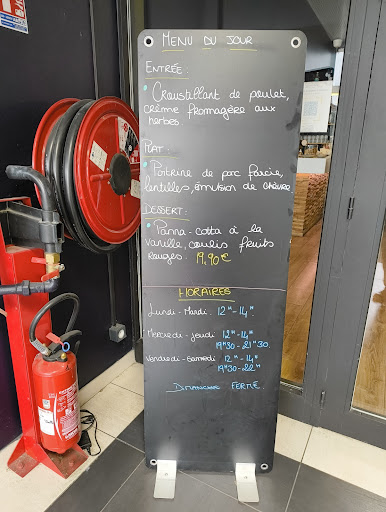 MENU DU JOUR
ENTRÉE :
• Croustillant de poulet,
crème fromagère aux
herbes
PLAT :
• Poitrine de porc farcie,
lentilles, émulsion de chèvre
DESSERT :
• Panna-cotta à la
vanille, coulis fruits
rouges : 19,90€
HORAIRES
Lundi - Mardi : 12H-14H
Mercredi - jeudi 12H-14H
19H30 - 21H30
Vendredi - Samedi : 12H-14H
19H30 - 22H
DIMANCHE FERMÉ